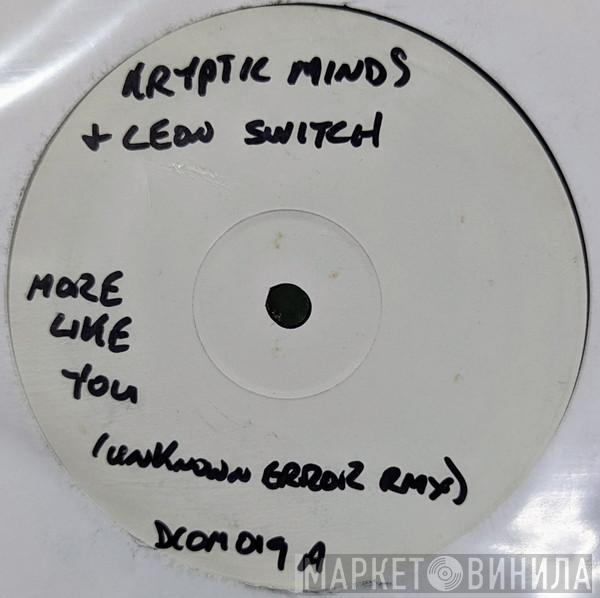 KRYPTIC MINDS
+ LEON SWITCH
MORE
LIKE
YOU
(UNKNOWN ERROR RMX)
DCOM019 A
МАРКЕТ ВИНИЛА